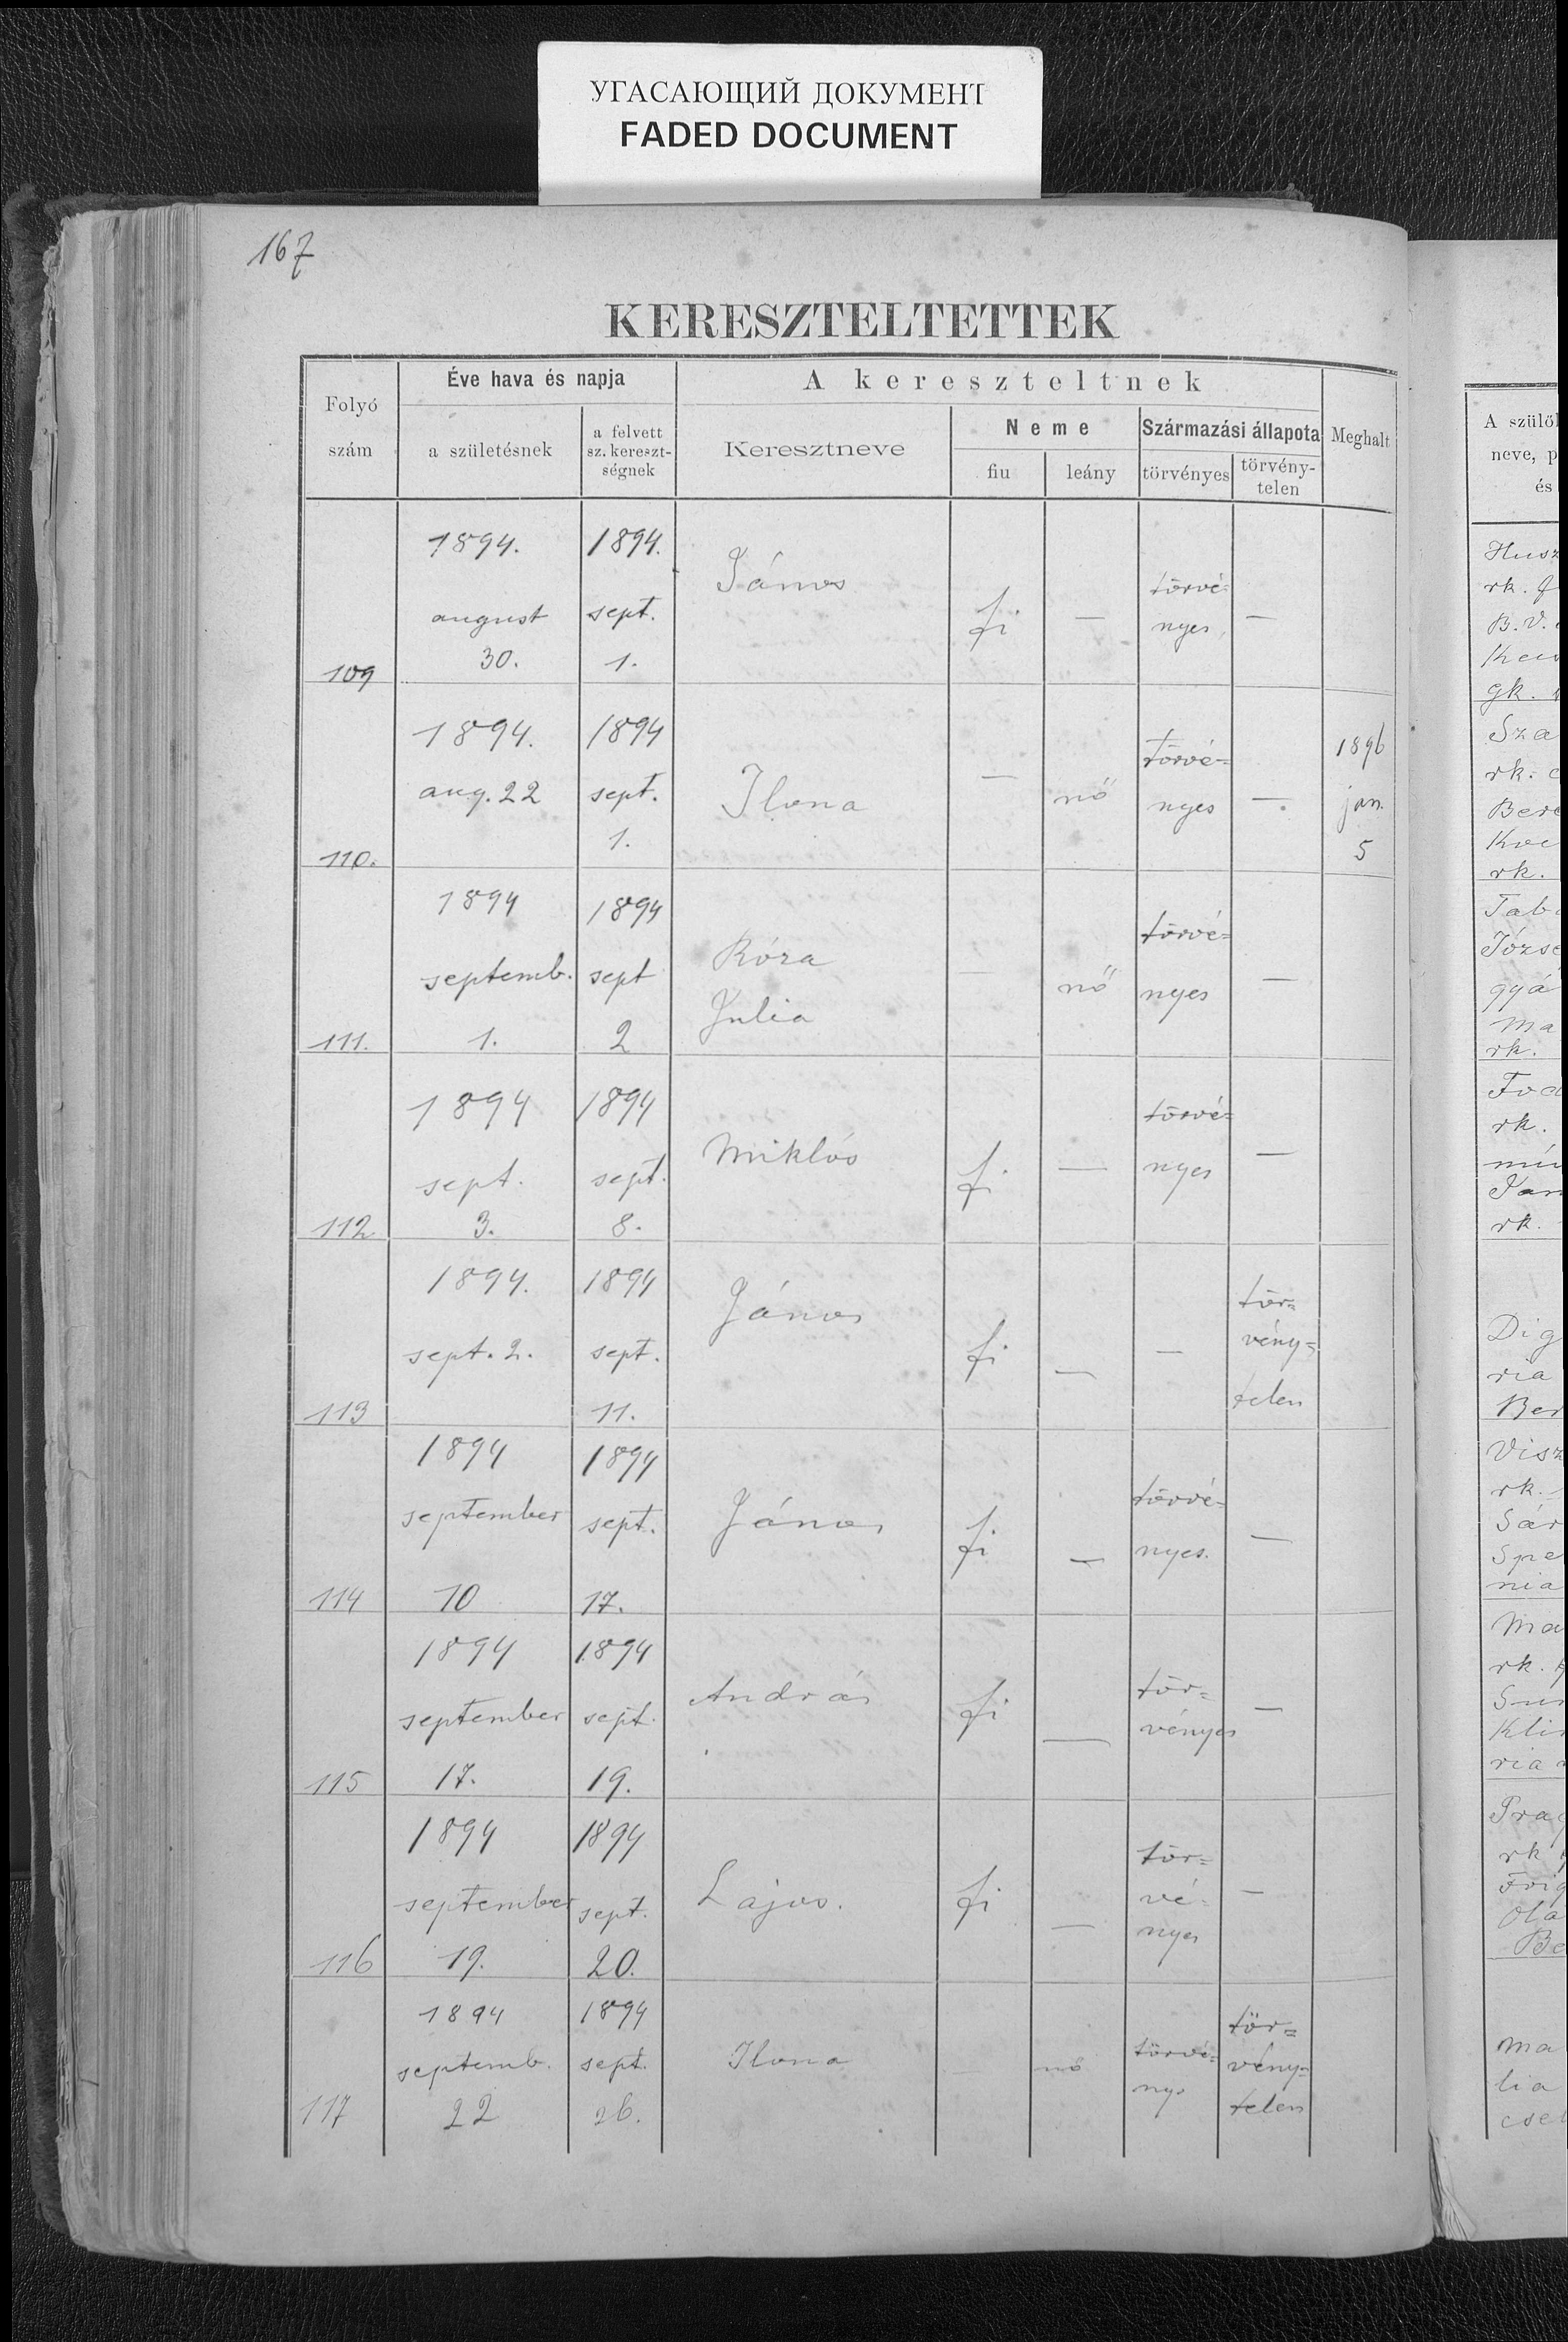 УГАСАЮЩИЙ ДОКУМЕНТ
FADED DOCUMENT
167
KERESZTELTETTEK
Folyó szám
Éve hava és napja
a születésnek
a felvett sz. kereszt-ségnek
A kereszteltnek
Keresztneve
Neme
fiu
leány
Származási állapota
törvényes
törvény-telen
Meghalt
109
1894. august 30.
1894. sept. 1.
János
fi
—
törvé-
nyes
—
110.
1894. aug. 22
1894 sept. 1.
Ilona
—
nő
törvé=
nyes
—.
1896
jan.
5
111.
1894 septemb. 1.
1894 sept 2
Róza
Julia
nő
törvé=
nyes
—
112
1894 sept. 3.
1894 sept. 8.
Miklós
fi
—
törvé=
nyes
—
113
1894. sept. 2.
1894 sept. 11.
János
fi
—
—
tör=
vény=
telen
114
1894 september 10
1894 sept. 17.
János
fi
—
törvé-
nyes.
—
115
1894 september 17.
1894 sept. 19.
András
fi
—
tör=
vényes
—
116
1894 september 19.
1894 sept. 20.
Lajos.
fi
—
tör=
vé-
nyes
—
117
1894 septemb. 22
1894 sept. 26.
Ilona
—
nő
törvé=
nys
tör=
vény=
telen
A szülő
neve, p
és
Husz
rk.
B. V.
gk.
Sza
rk. c
Bere
rk.
Tab
Józse
gyá
Ma
rk.
rk.
rk.
Dig
ria
Ber
Visz
rk.
Sár
Spe
nia
Ma
rk.
Kli
ria
Prag
rk
Frig
Olá
Be
Ma
lia
cse